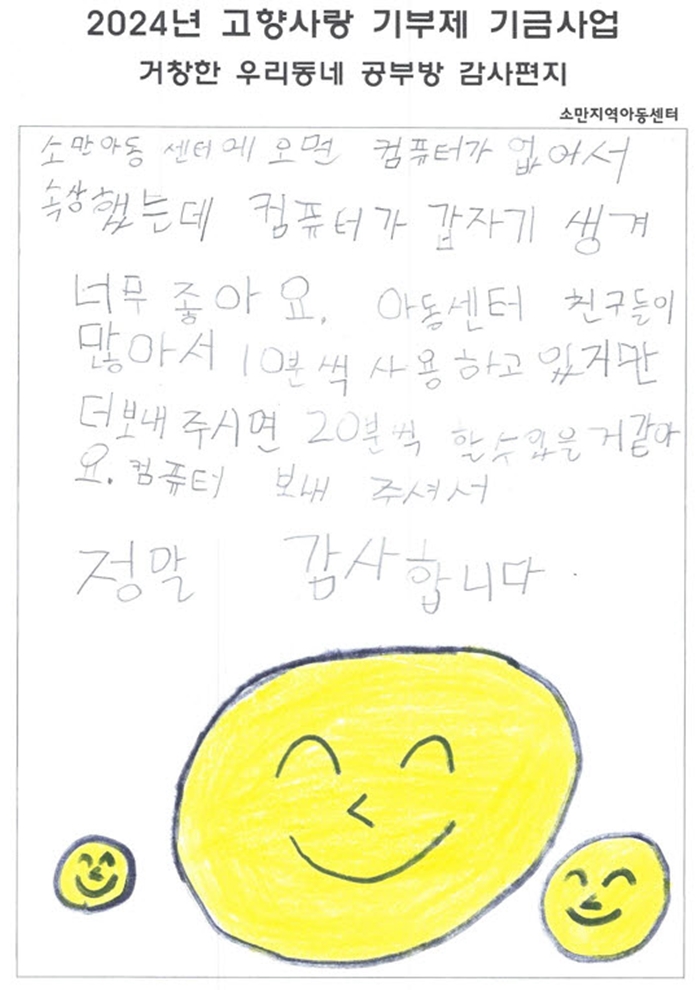 2024년 고향사랑 기부제 기금사업
거창한 우리동네 공부방 감사편지
소만지역아동센터
소만아동 센터에 오면 컴퓨터가 없어서
속상했는데 컴퓨터가 갑자기 생겨
너무 좋아요. 아동센터 친구들이
많아서 10분씩 사용하고 있지만
더보내주시면 20분씩 할수있을거같아
요. 컴퓨터 보내 주셔서
정말 감사합니다.